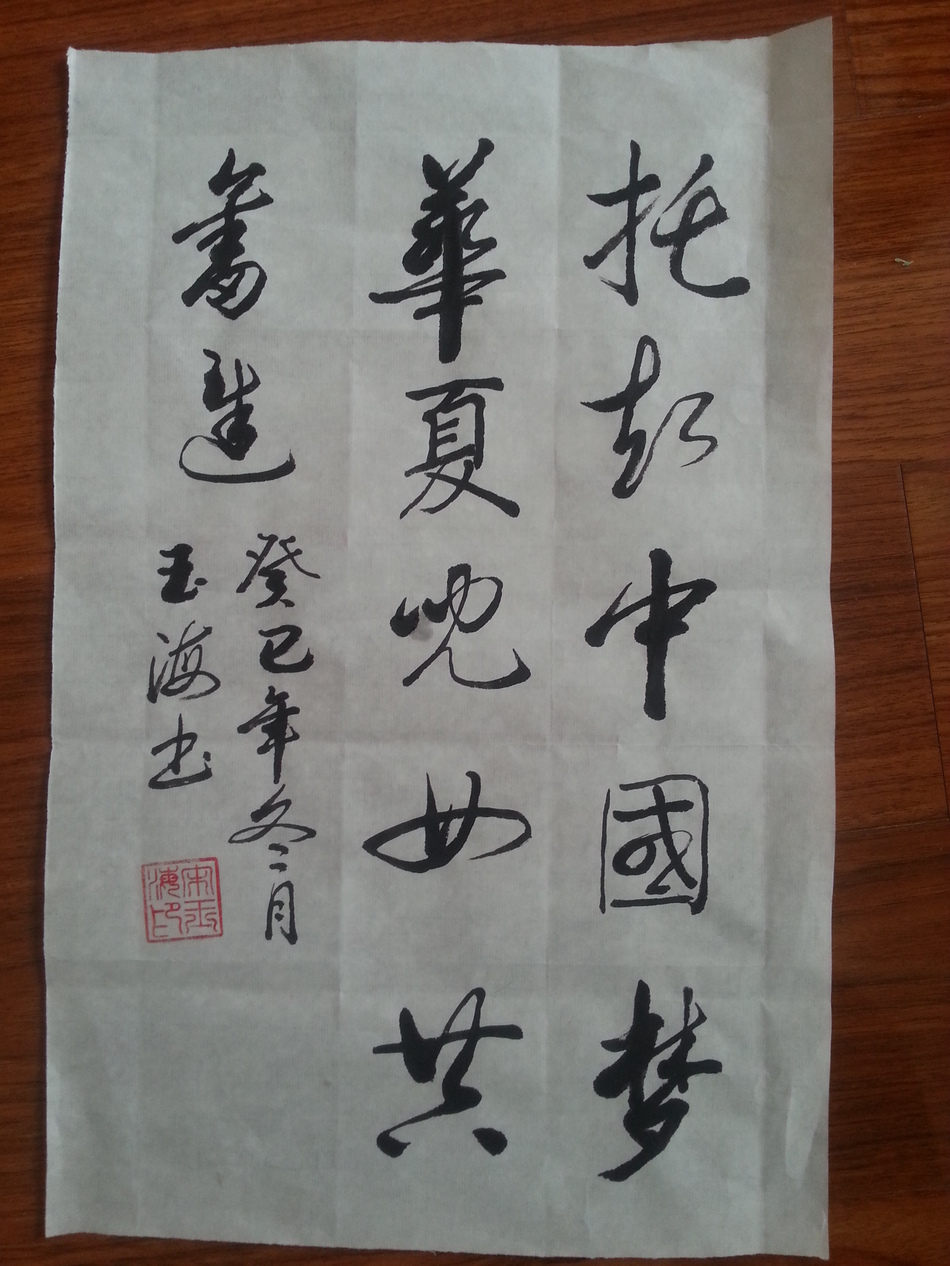 托起中國梦
華夏兒女共
奮進
癸巳年冬二月
玉海书
宋玉海印